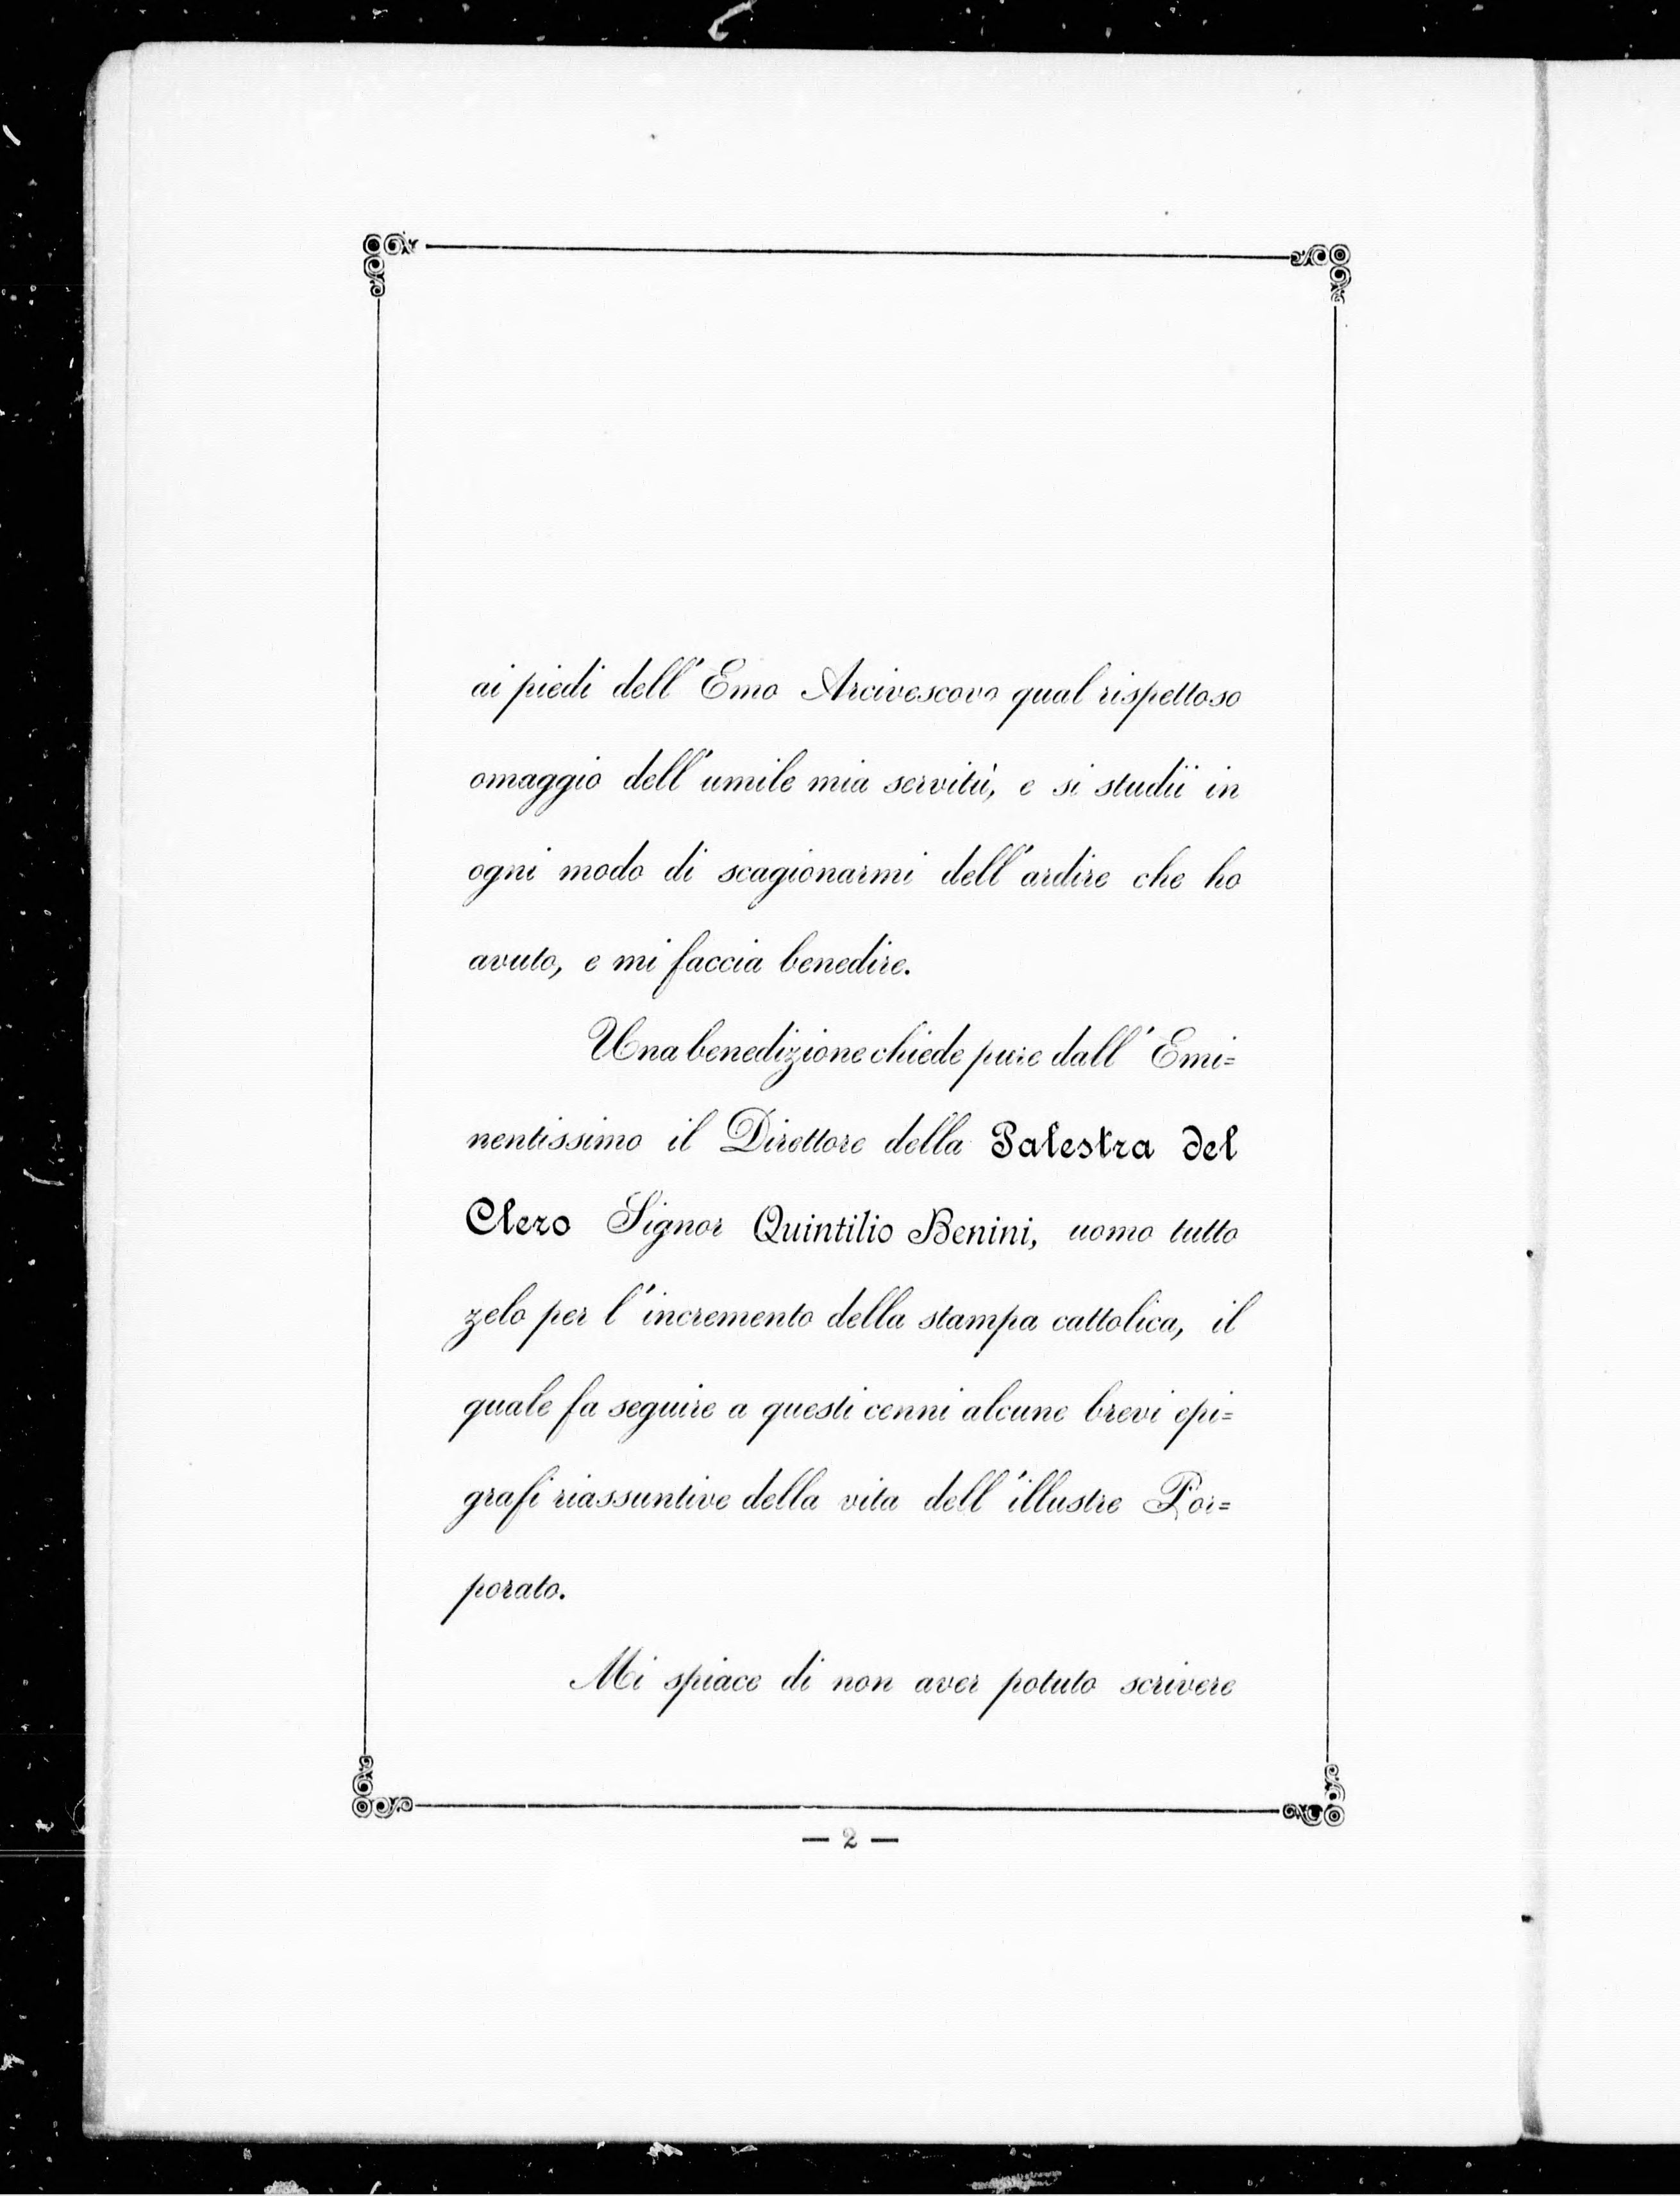 ai piedi dell' Emo Arcivescovo qual rispettoso
omaggio dell' umile mia servitù, e si studii in
ogni modo di scagionarmi dell' ardire che ho
avuto, e mi faccia benedire.
Una benedizione chiede pure dall' Emi=
nentissimo il Direttore della Palestra del
Clero Signor Quintilio Benini, uomo tutto
zelo per l' incremento della stampa cattolica, il
quale fa seguire a questi cenni alcune brevi epi=
grafi riassuntive della vita dell' illustre Por=
porato.
Mi spiace di non aver potuto scrivere
— 2 —